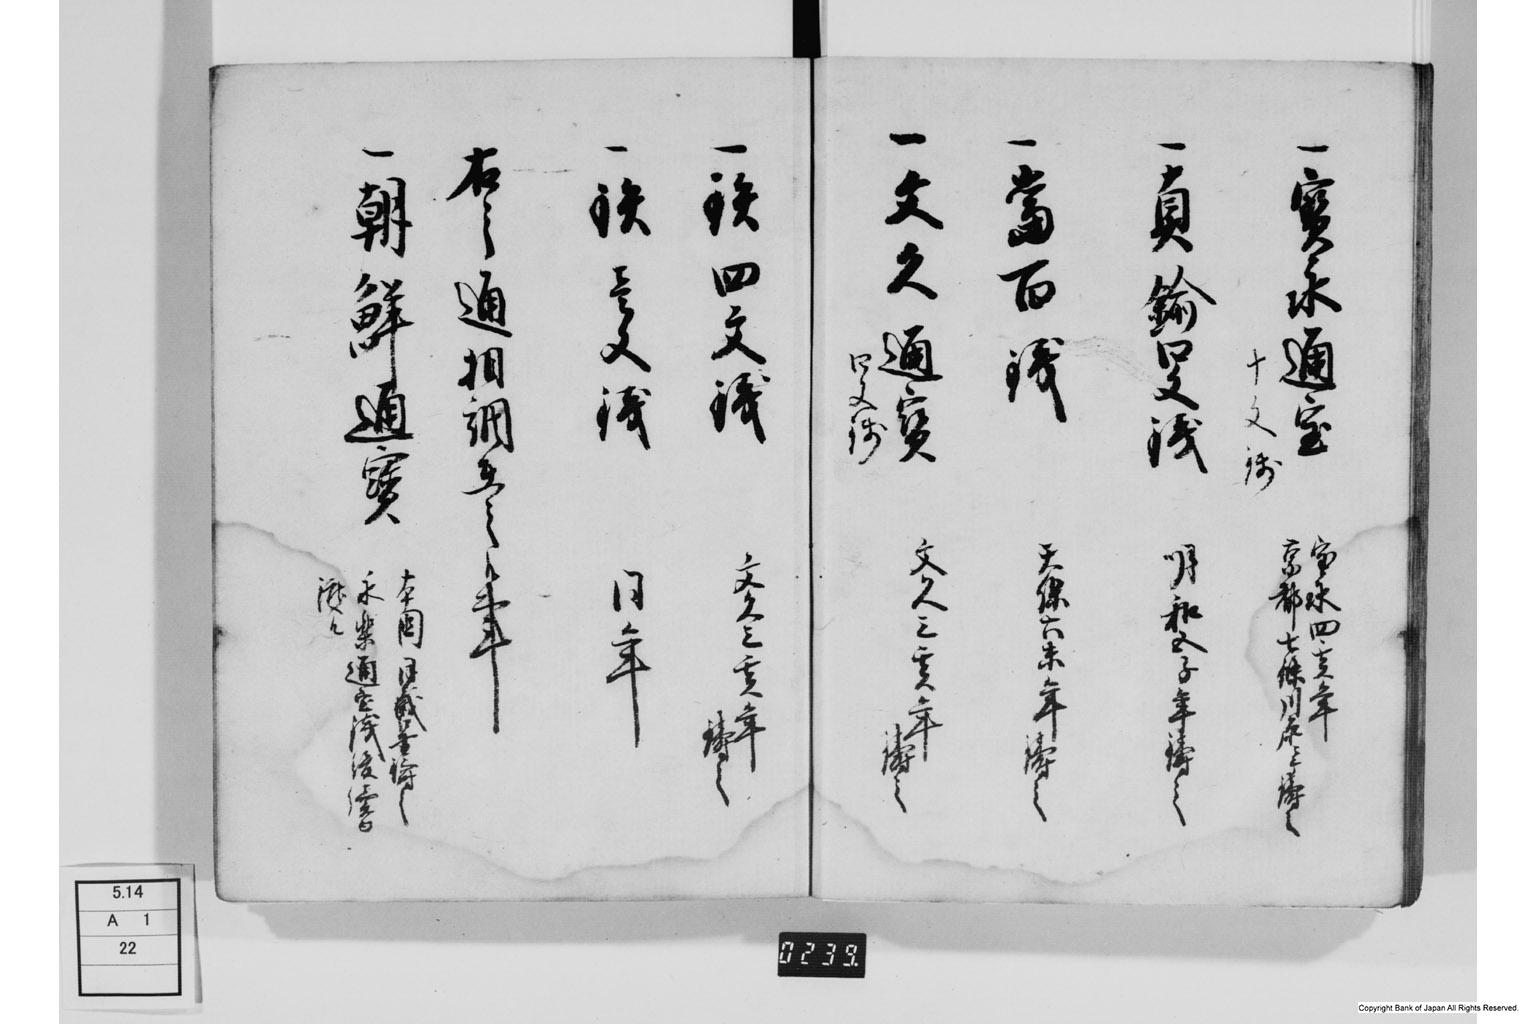 一寶永通宝
十文銭
宝永四亥年
京都七條川原ニ而鋳之
一真鍮四文銭
明和五子年鋳之
一當百銭
天保六未年鋳之
一文久通寳
四文銭
文久三亥年
鋳之
一鉄四文銭
文久三亥年
鋳之
一鉄壱文銭
同年
右之通相調
一朝鮮通寳
本国
鋳之
永楽通宝銭後
5.14
A 1
22
0239.
Copyright Bank of Japan All Rights Reserved.